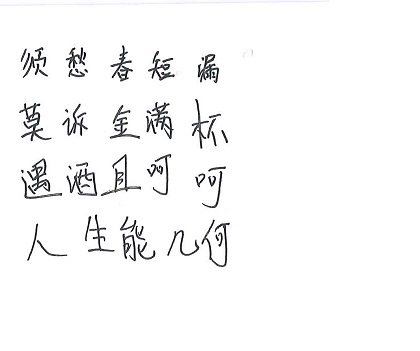 须愁春短漏
莫诉金满杯
遇酒且呵呵
人生能几何